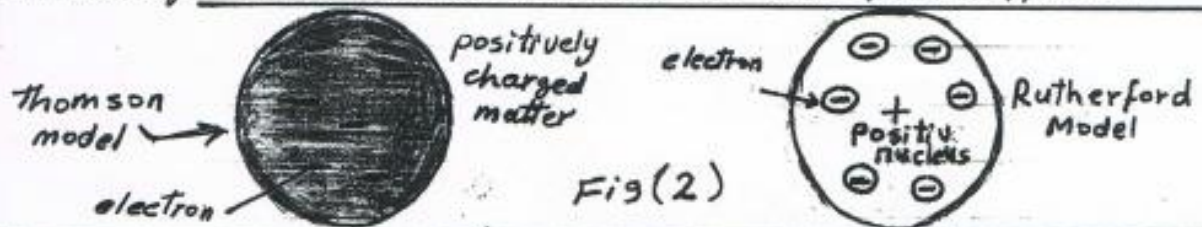 Thomson
model
electron
positively
charged
matter
Fig(2)
electron
+
positiv
nucleus
Rutherford
Model